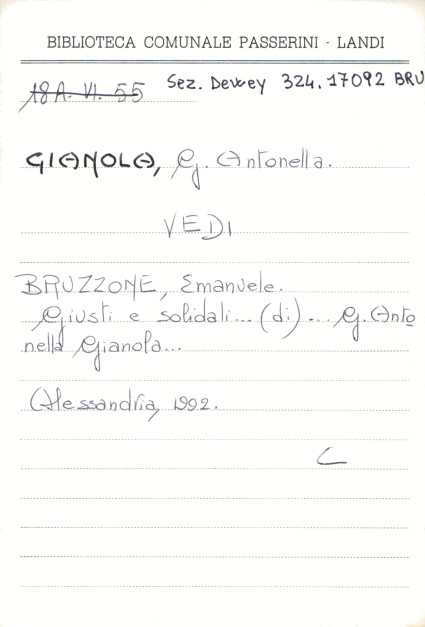 BIBLIOTECA COMUNALE PASSERINI - LANDI
18 A. VI. 55 Sez. Dewey 324.17092 BRU
GIANOLA, G. Antonella.
VEDI
BRUZZONE, Emanuele.
Giusti e solidali... (di)... G. Anto
nella Gianola...
Alessandria, 1992.
C